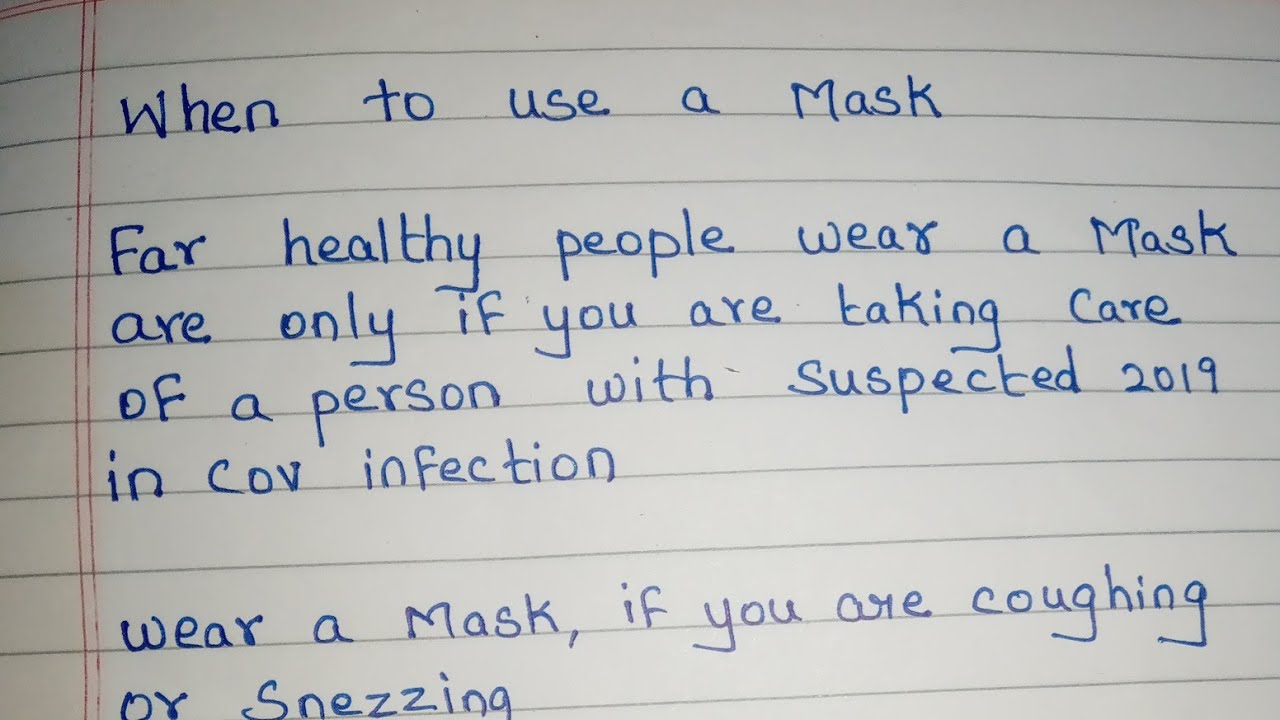 When to use a Mask
Far healthy people wear a Mask
are only if you are taking care
of a person with suspected 2019
in cov infection
wear a Mask, if you are coughing
or Snezzing